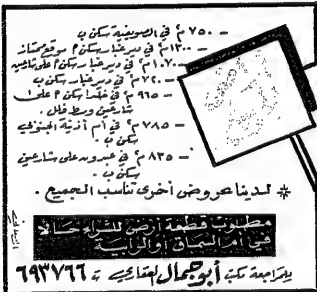 - ٧٥٠ م٢ في الصويفية سكن ب
- ١٣٠٠ م٢ في دير غبار سكن أ موقع ممتاز
- ١٠٧٠ م٢ في دير غبار سكن أ على شارعين
- ٧٢٠ م٢ في دير غبار سكن ب
- ٩٦٥ م٢ في خلدا سكن أ على
شارعين وسط فلل .
- ٧٨٥ م٢ في أم أذينة الجنوبي
سكن ب .
- ٨٣٥ م٢ في عبدون على شارعين
سكن ب .
* لدينا عروض أخرى تناسب الجميع .
مطلوب قطعة أرض للشراء حالاً
في أم السماق أو الرابية
للمراجعة مكتب أبو جمال العقاري ت ٦٩٣٧٦٦